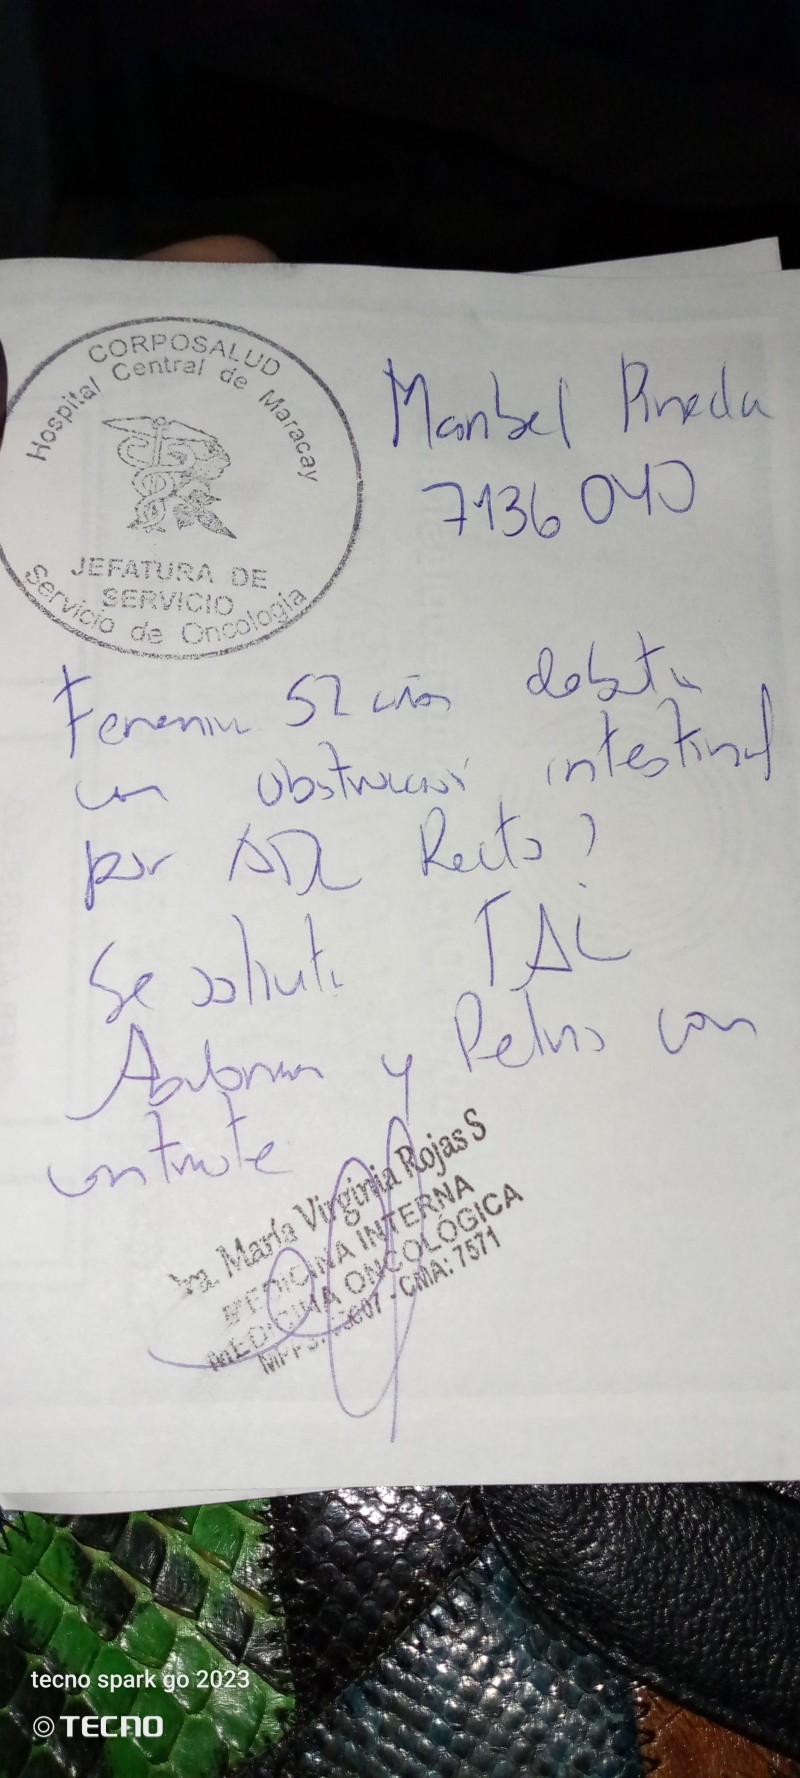 CORPOSALUD
Hospital Central de Maracay
JEFATURA DE
SERVICIO
Servicio de Oncología
Maribel Pineda
7136040
Femenina 52 años debuta
con obstrucción intestinal
por Recto?
Se solicita TAC
Abdomen y Pelvis con
contraste
Dra. María Virginia Rojas S
MEDICINA INTERNA
MEDICINA ONCOLÓGICA
CMA: 7571
tecno spark go 2023
TECNO